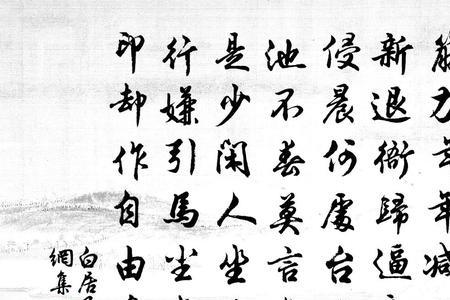 筋力年年減
新退衙歸逼
侵晨何處台
池不春莫言
是少閑人坐
行嫌引馬尘
印却作自由
白居
網集